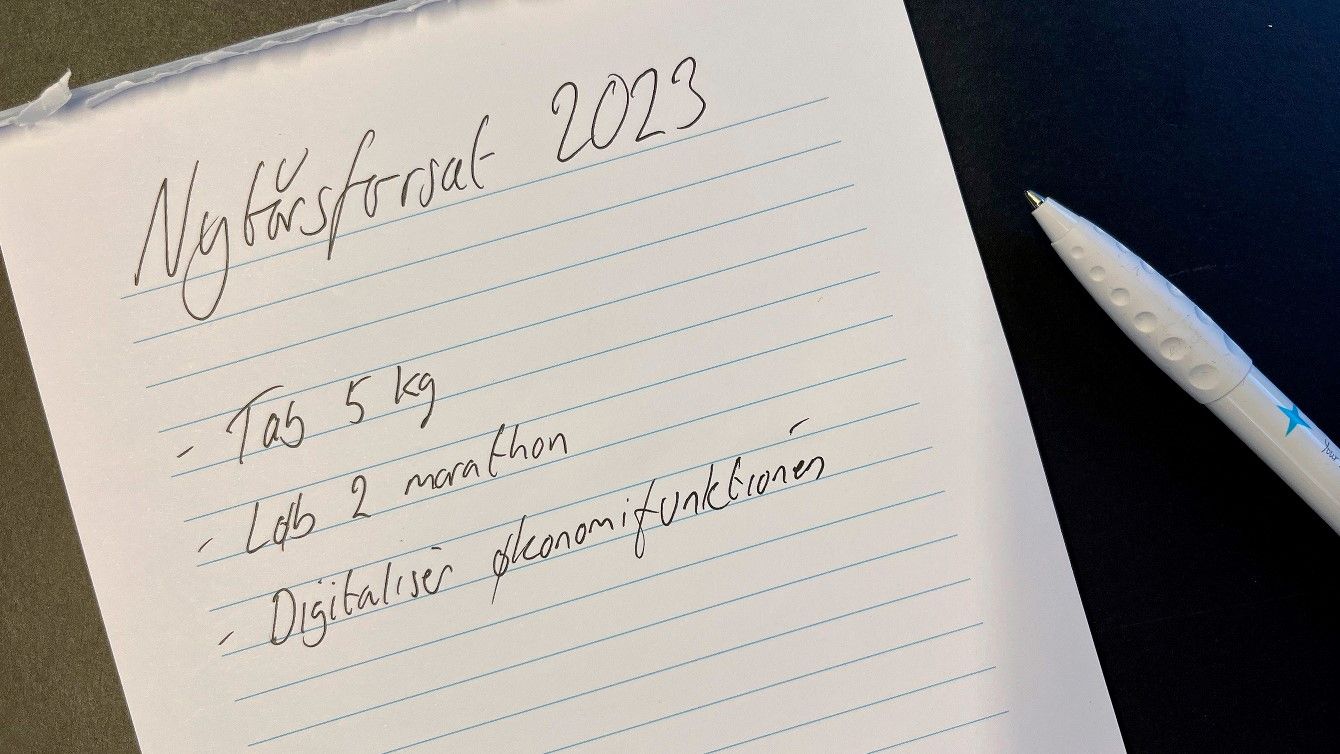 Nytårsforsæt 2023
- Tab 5 kg
- Løb 2 marathon
- Digitaliser økonomifunktionen
Your